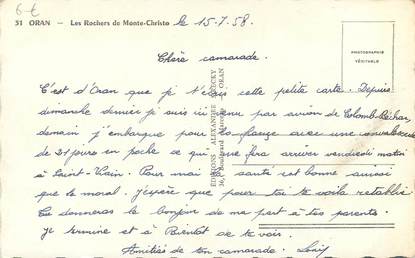 6 €
31 ORAN — Les Rochers de Monte-Christo
le 15-7-58.
PHOTOGRAPHIE
VÉRITABLE
Chère camarade.
C'est d'Oran que je t'écris cette petite carte. Depuis
dimanche dernier je suis ici venu par avion de Colomb-Béchar,
demain j'embarque pour la france avec une convalescence
de 21 jours en poche ce qui me fera arriver vendredi matin
à Saint-Vrain Pour moi la santé est bonne aussi
que le moral. J'espère que pour toi te voila rétablie
Tu donneras le bonjour de ma part à tes parents.
Je termine et à Bientôt de te voir.
Amitiés de ton camarade. Louis
ÉDITIONS ALEXANDRE
ORAN